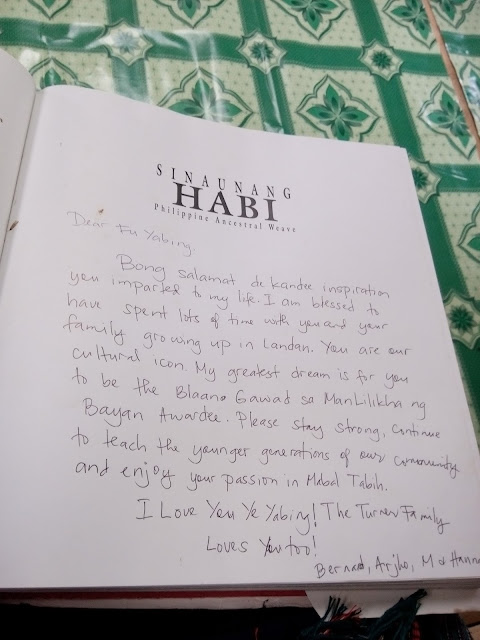 SINAUNANG
HABI
Philippine Ancestral Weave
Dear Fu Yabing,
Bong salamat de kandee inspiration
you imparted to my life. I am blessed to
have spent lots of time with you and your
family growing up in Landan. You are our
cultural icon. My greatest dream is for you
to be the Blaan Gawad sa ManLilikha ng
Bayan Awardee. Please stay strong, continue
to teach the younger generations of our community
and enjoy your passion in Mabal Tabih.
I Love You Ye Yabing! The Turner Family
Loves You too!
Bernad, Arjho, M & Hanna